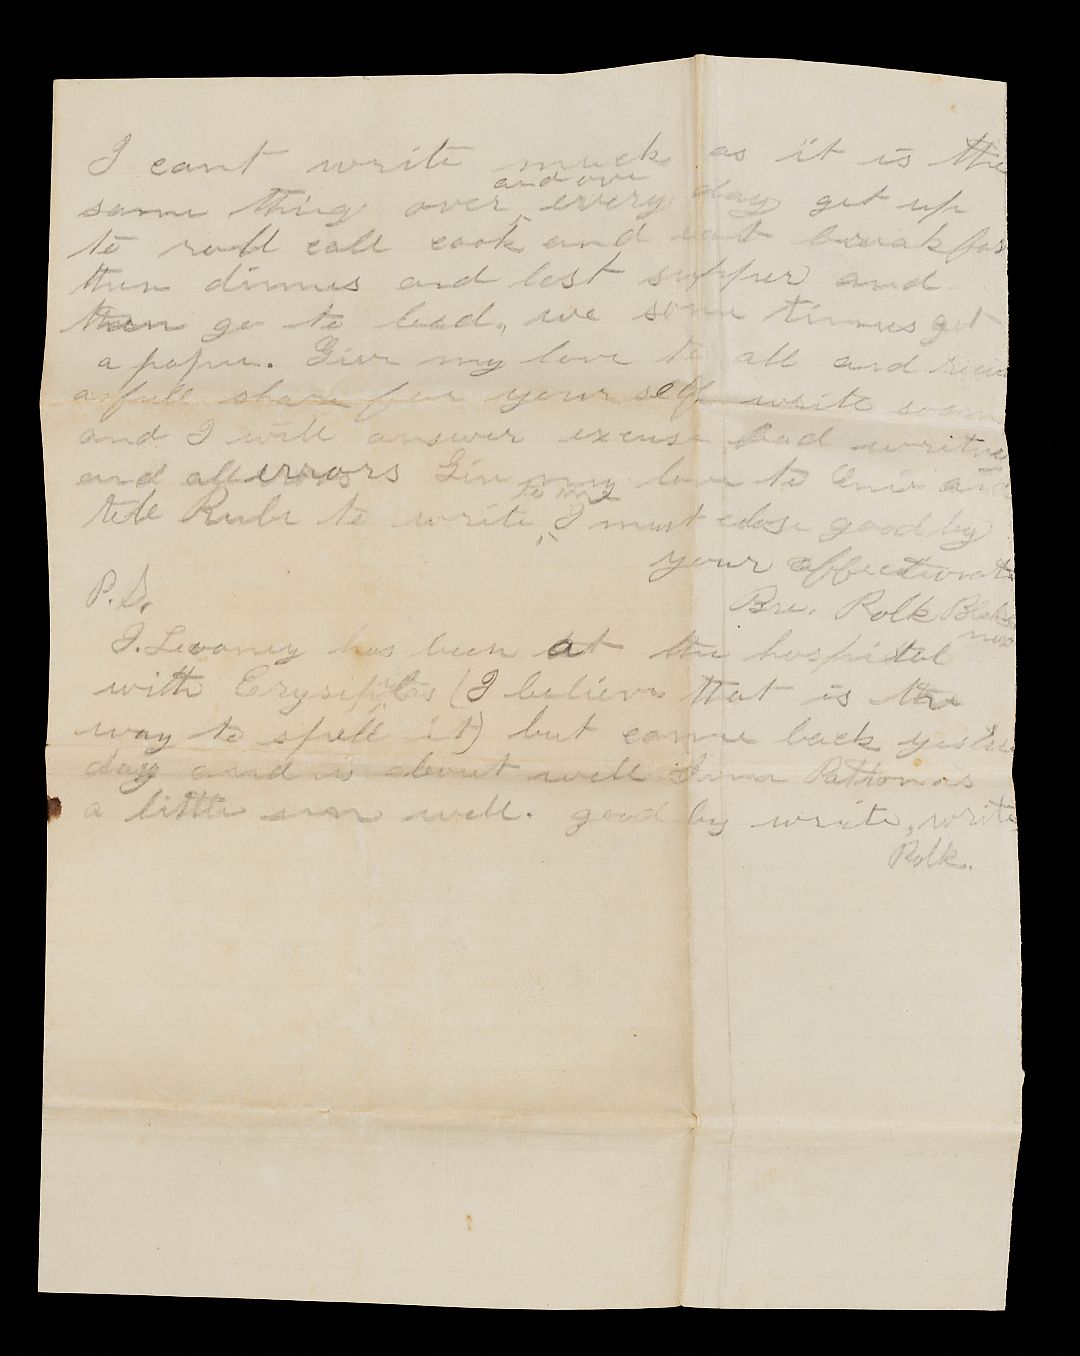 I cant write much as it is the
same thing over and over every day get up
to roll call cook and eat breakfas
then dinner and last supper and
then go to bed, we some times get
a paper. Give my love to all and reciv
a full share for your self write soon
and I will answer excuse bad writing
and all errors Give my love to and
tell Rube to write to me I must close good by
your affectionate
Bro. Rolk
P.S.
J. has been at the hospital
with Erysipeles (I believe that is the
way to spell it) but came back yester
day and is about well Patton is
a little un well. good by write, write
Rolk.